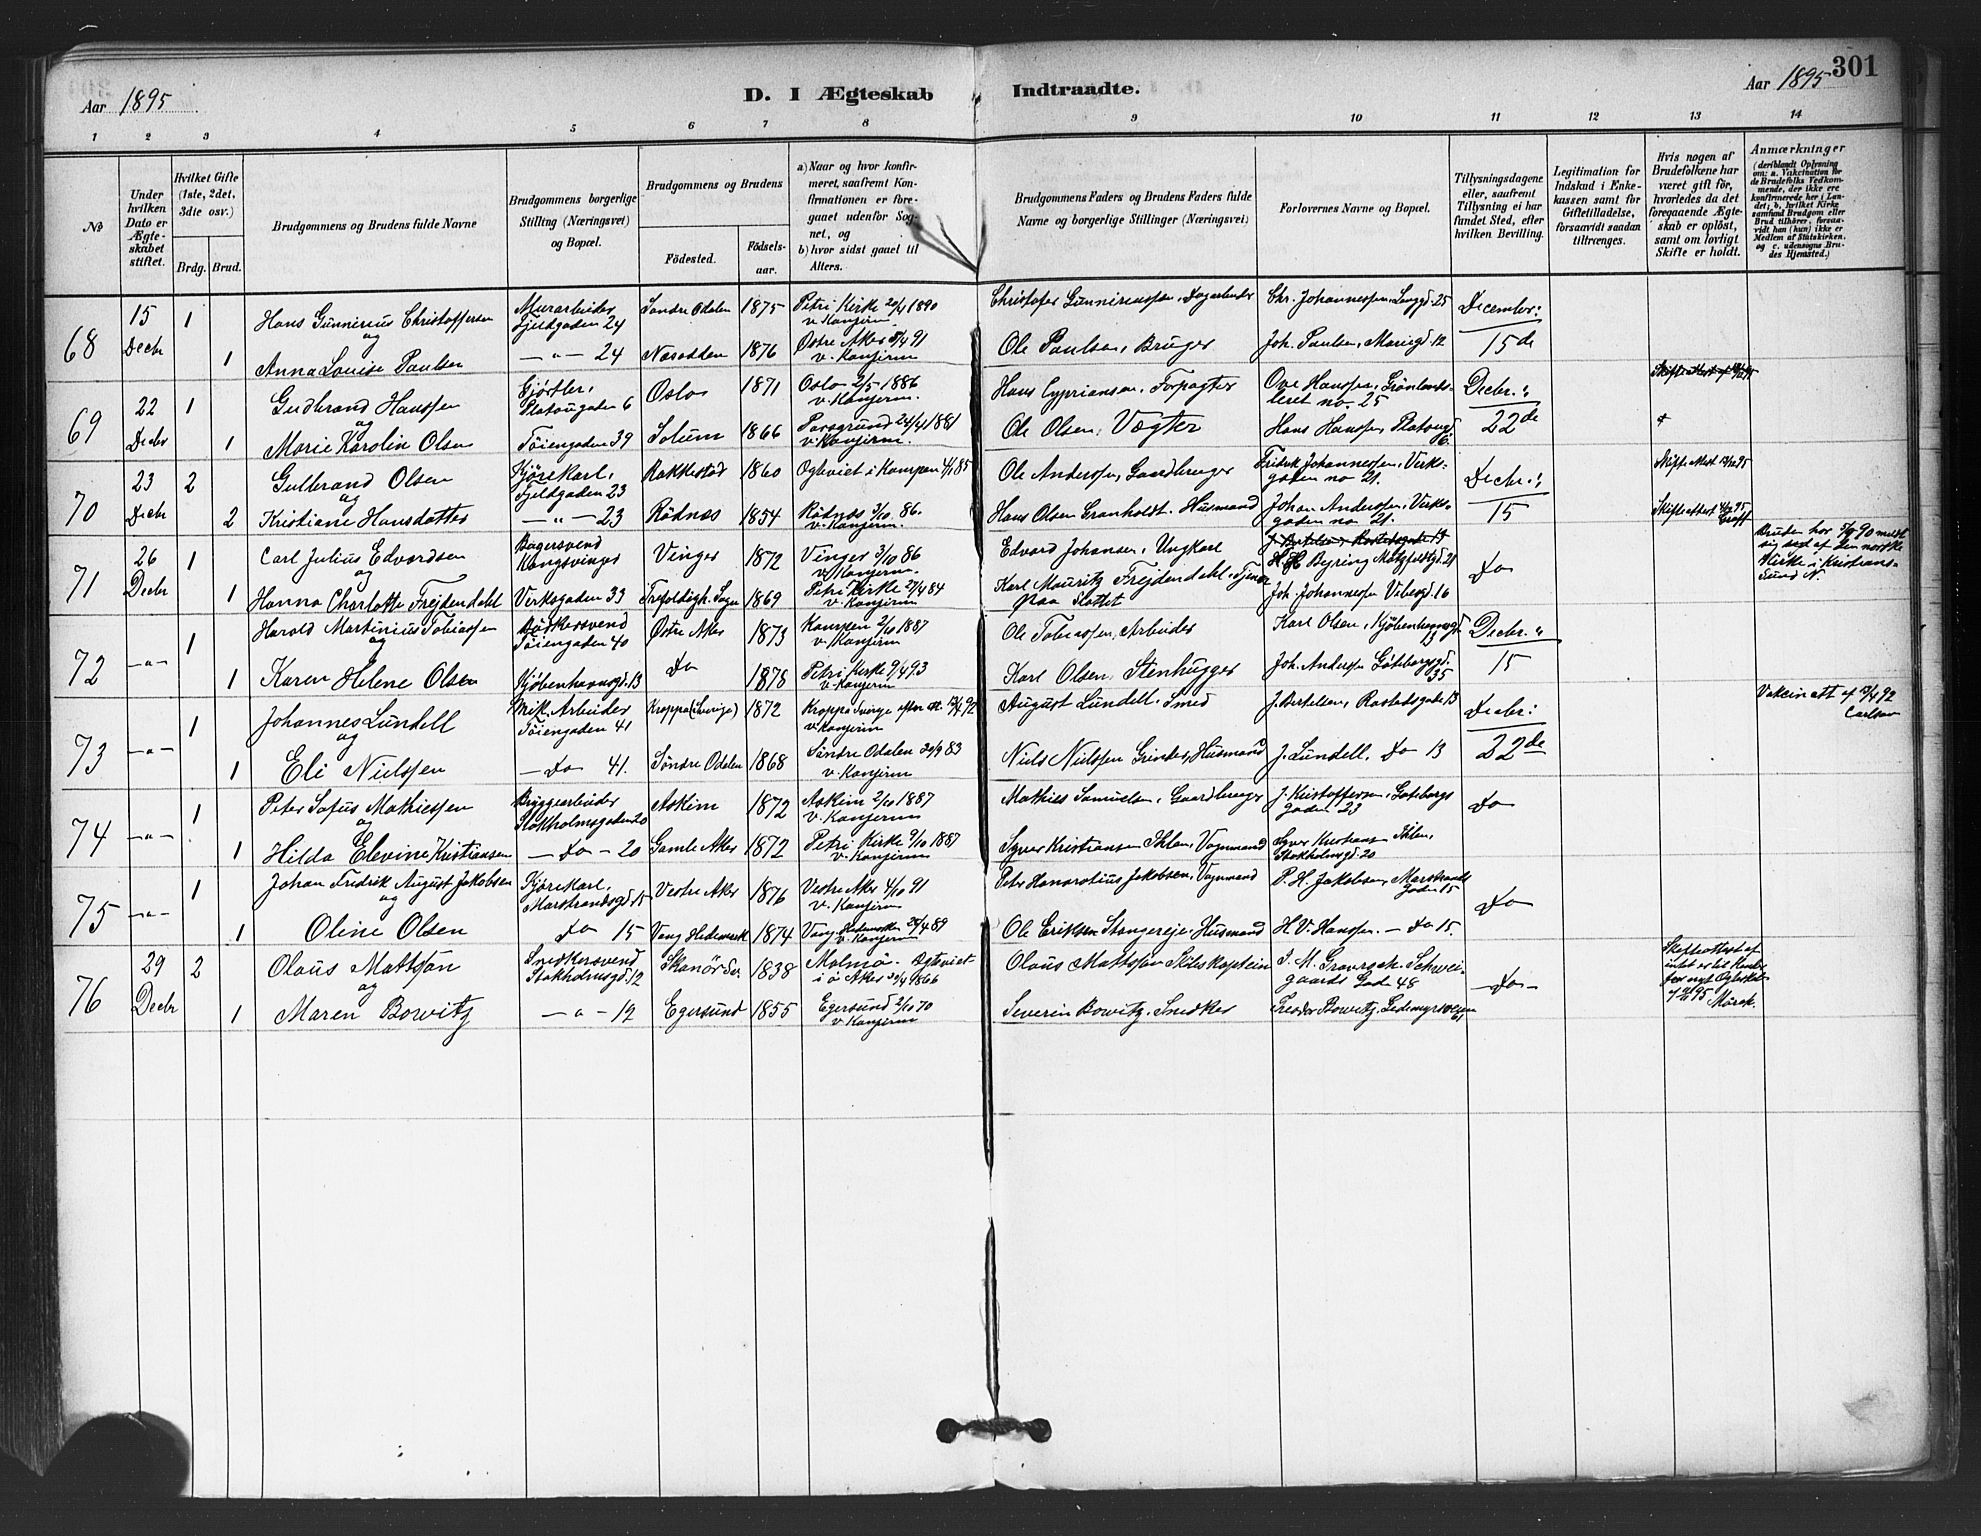 Aar 1895
D. I Ægteskab Indtraadte.
Aar 1895
301
1 2 3 4 5 6 7 8 9 10 11 12 13 14
No
Under hvilken Dato er Ægteskabet stiftet.
Hvilket Gifte (1ste, 2det, 3die osv.)
Brdg. Brud.
Brudgommens og Brudens fulde Navne
Brudgommens borgerlige Stilling (Næringsvei) og Bopæl.
Brudgommens og Brudens
Fødested.
Fødselsaar.
a) Naar og hvor konfirmeret, saafremt Konfirmationen er foregaaet udenfor Sognet, og
b) hvor sidst gaaet til Alters.
Brudgommens Faders og Brudens Faders fulde Navne og borgerlige Stillinger (Næringsvei)
Forlovernes Navne og Bopæl.
Tillysningsdagene eller, saafremt Tillysning ei har fundet Sted, efter hvilken Bevilling.
Legitimation for Indskud i Enkekassen samt for Giftetilladelse, forsaavidt saadan tiltrænges.
Hvis nogen af Brudefolkene har været gift før, hvorledes da det foregaaende Ægteskab er opløst, samt om lovligt Skifte er holdt.
Anmærkninger
(deriblandt Oplysning om: a. Vakcination for de Brudefolks Vedkommende, der ikke ere konfirmerede her i Landet; b. hvilket Kirkesamfund Brudgom eller Brud tilhører, forsaavidt han (hun) ikke er Medlem af Statskirken, og c. udensogns Brudes Hjemsted.)
68 15 Decbr 1 Hans Gunnirius Christoffersen Murarbeider Fjeldgaden 24 Søndre Odalen 1875 Petri Kirke 20/4 1890 v. Konfirm. Christofer Gunniriussen, Dagarbeider Chr. Johannessen, 25 December:
og
1 Anna Louise Paulsen —"— 24 Nesodden 1876 Østre Aker 91 v. Konfirm Ole Paulsen, Bruger Joh. Paulsen, Mariegd. 12 15de
69 22 Decbr 1 Gudbrand Hanssen Gjørtler, Platougaden 6 Oslo 1871 Oslo 2/5 1886 v. Konfirm. Hans Cypriansen, Forpagter Ove Hanssen, Grønlandsleret no. 25 Decbr.:
og
1 Marie Karolin Olsen Tøiengaden 39 Solum 1866 Porsgrund 24/4 1881 v. Konfirm. Ole Olsen, Vægter Hans Hanssen, Platougd 6. 22de
70 23 Decbr 2 Gulbrand Olsen Kjørekarl, Fjeldgaden 23 Rakkestad 1860 Ogteviet i Kampen 85 Ole Anderssen, Gaardbruger Fridrik Johannessen, Verksgaden no 21. Decbr.: Skifteattest 95
og
2 Kristiane Hansdatter —"— 23 Rødnæs 1854 Rødnæs 3/10 86. v. Konfirm. Hans Olsen Granholdt. Husmand Johan Anderssen, Verksgaden no. 21. 15 Skifteattest 95
71 26 Decbr 1 Carl Julius Edvardsen Bagersvend Kongsvinger Vinger 1872 Vinger 3/10 86 v. Konfirm. Edvard Johansen, Ungkarl J. Bertelsen, Rostedsgade 13 H Byring Motzfeldtgd. 21 Do Bruden har 90 meldt sig ud af den norske Kirke i Kristianssund N.
og
1 Hanna Charlotte Frejdendahl Verksgaden 33 Trefoldigh. Sogn 1869 Petri Kirke 27/4 84 v. Konfirm Karl Mauritz Frejdendahl, Tjener paa Slottet Joh. Johannessen Vibesgd. 16
72 —"— 1 Harald Martinius Tobiassen Bødkersvend Tøiengaden 40 Østre Aker 1873 Kampen 2/10 1887 v. Konfirm Ole Tobiassen, Arbeider Karl Olsen, Kjøbenhavnsgd. 13 Decbr.:
og
1 Karen Helene Olsen Kjøbenhavnsgd. 13 Do 1878 Petri Kirke 9/4 93 v. Konfirm Karl Olsen, Stenhugger Joh. Anderssen Gøteborgsgd. 35 15
73 —"— 1 Johannes Lundell Mek. Arbeider Tøiengaden 41 Kroppa (Sverige) 1872 Kroppa Sverige efter att. 92 v. Konfirm August Lundell. Smed J. Bertelsen, Rostedsgade 13 Decbr: Vakcin att af 92 Carlson
og
1 Eli Nielssen —Do 41. Søndre Odalen 1868 Søndre Odalen 30/9 83 v. Konfirm Niels Nielssen Grinder, Husmand J. Lundell. Do 13 22de
74 —"— 1 Peter Sofus Mathiessen Byggearbeider Stokholmsgaden 20 Askim 1872 Askim 2/10 1887 v. Konfirm Mathies Samuelsen, Gaardbruger J. Kristoffersen, Gøteborgsgaden 23 Do
og
1 Hilda Elevine Kristiansen —Do— 20 Gamle Aker 1872 Petri Kirke 9/10 1887 v. Konfirm Syver Kristiansen Ihlen, Vognmand Syver Kristiansen Ihlen, Stokholmsgd. 20
75 —"— 1 Johan Fredrik August Jakobsen Kjørekarl, Marstrandsgd. 15 Vestre Aker 1876 Vestre Aker 4/10 91 v. Konfirm Peter Honoratius Jakobsen, Vognmand P. H. Jakobsen, Marstrandsgaden 15 Do
og
1 Oline Olsen Do 15 Vang Hedemark 1874 Vang Hedemarken 28/4 89 v. Konfirm Ole Eriksen Stangereje Husmand H. V. Hanssen. — Do 15.
76 29 Decbr 2 Olaus Mattsson Snedkersvend Stokholmsgd. 12 Skanör Sv. 1838 Malmö. Egteviet i ö Aker 1866 Olaus Mattsson Skibskaptein S. M. Schweigaards Gade 48 —Do— Skifteattest af 95 Mørck.
og
1 Maren Bowitz —"— 12 Egersund 1855 Egersund 2/10 70 v. Konfirm Severin Bowitz. Snedker Teodor Bowitz, 61